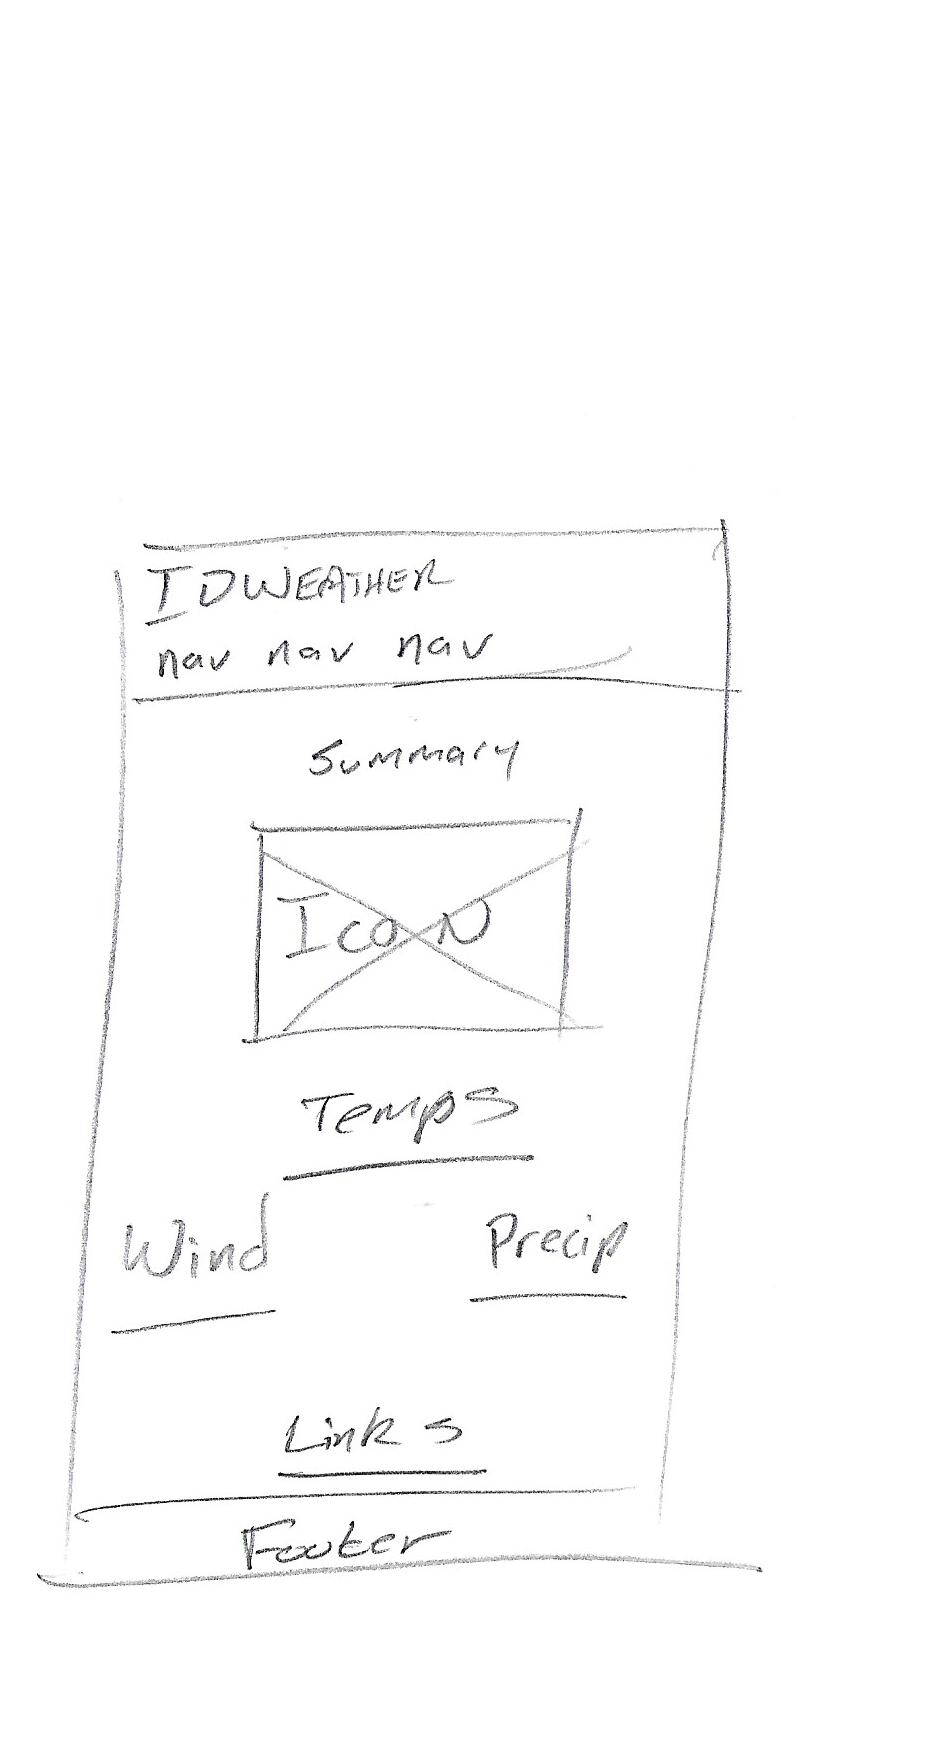 IDWEATHER
nav nav nav
Summary
ICON
Temps
Wind Precip
Links
Footer